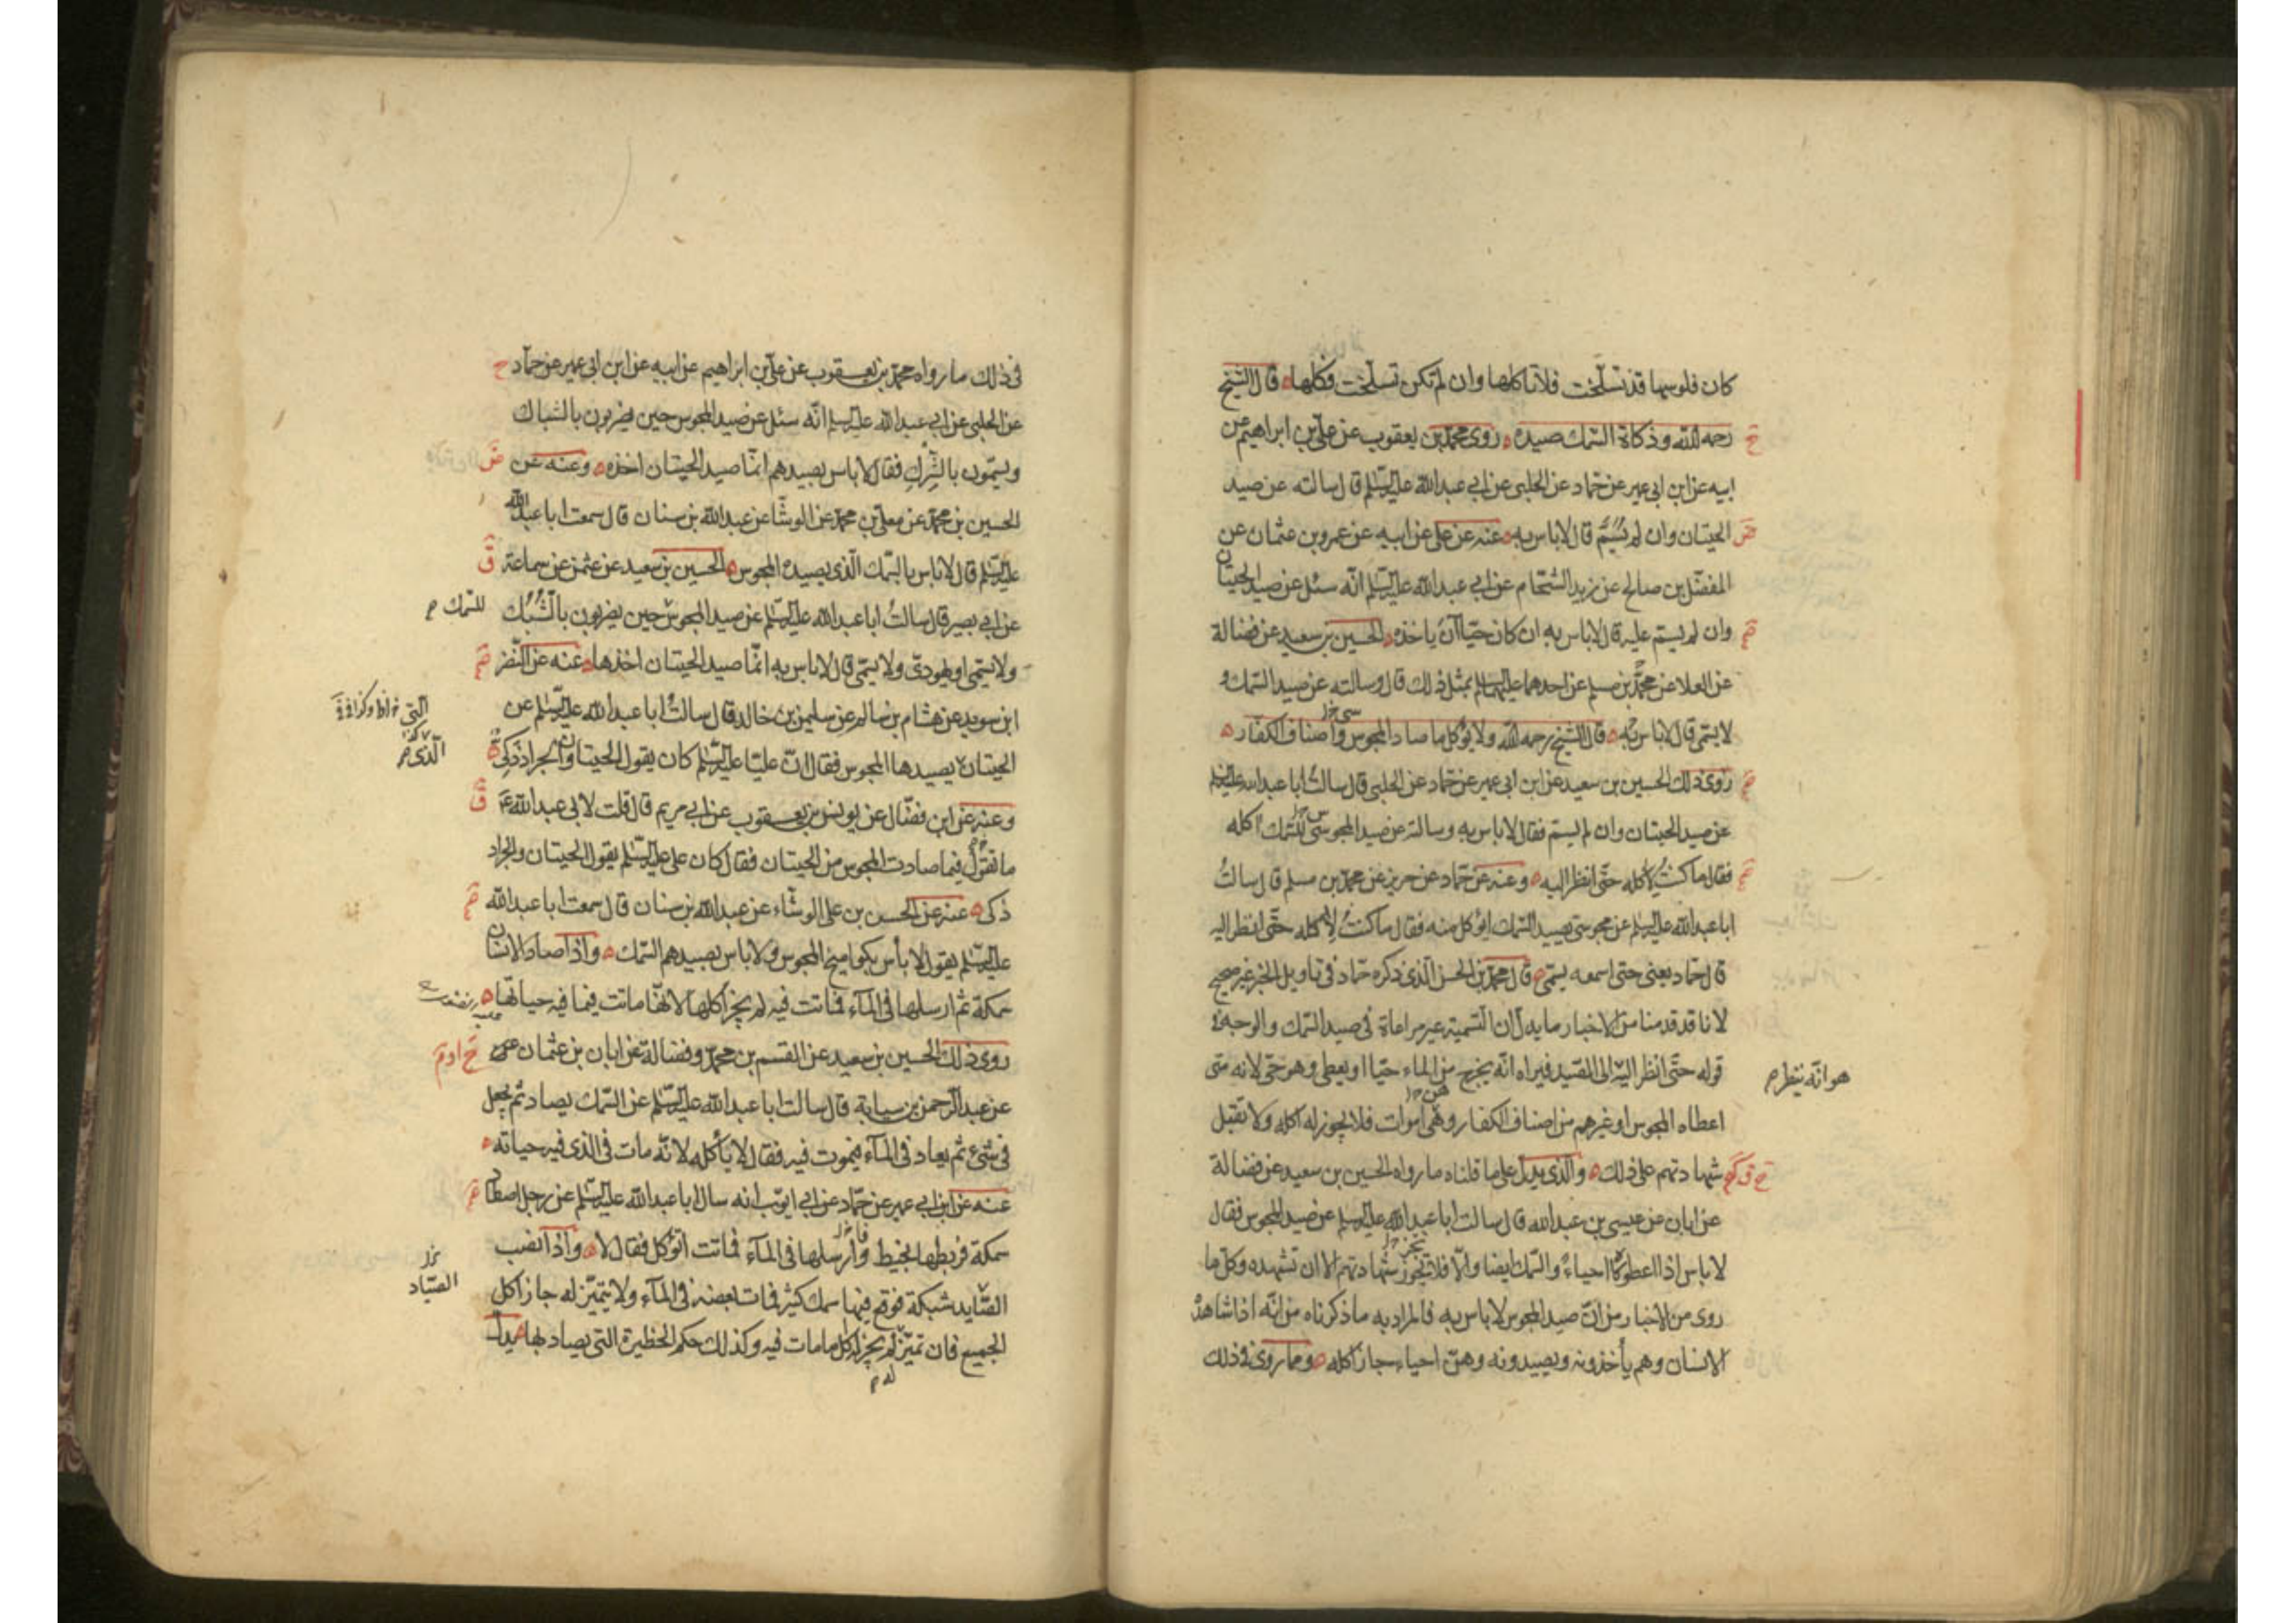 كان فلوسها قد تسلّخت فلا تاكلها وان لم تكن تسلّخت فكلها قال الشيخ
رحمه الله وذكاة السّمك صيده روى محمّد بن يعقوب عن علىّ بن ابراهيم عن
ابيه عن ابن ابى عمير عن حمّاد عن الحلبى عن ابى عبد الله عليه السّلم قال سالته عن صيد
الحيتان وان لم يُسَمَّ قال لا باس به عنه عن على عن ابيه عن عمرو بن عثمان عن
المفضّل بن صالح عن زيد الشحّام عن ابى عبد الله عليه السّلم انّه سئل عن صيد الحيتان
وان لم يسمّ عليه قال لا باس به ان كان حيّا ان ياخذه الحسين بن سعيد عن فضالة
عن العلا عن محمّد بن مسلم عن احدهما عليهما السلم بمثل ذلك قال وسالته عن صيد السّمك و
لا يسمّى قال لا باس به قال الشيخ رحمه الله ولا يؤكل ما صاد المجوس واصناف الكفّار
روى ذلك الحسين بن سعيد عن ابن ابى عمير عن حمّاد عن الحلبى قال سالت ابا عبد الله عليه السّلم
عن صيد الحيتان وان لم يسمّ فقال لا باس به وسالته عن صيد المجوسى للسّمك اكله
فقال ما كنتُ لاكله حتّى انظر اليه وعنه عن حمّاد عن حريز عن محمّد بن مسلم قال سالتُ
ابا عبد الله عليه السلم عن مجوسى يصيد السّمك ايؤكل منه فقال ما كنتُ لاكله حتّى انظر اليه
قال حمّاد يعنى حتى اسمعه يسمّى قال محمّد بن الحسن الّذى ذكره حمّاد فى تاويل الخبر غير صحيح
لانا قد قدمنا من الاخبار ما يدلّ ان التسمية غير مراعاة فى صيد السّمك والوجه فى
قوله حتّى انظر اليه الى الصّيد فيراه انّه يخرج من الماء حيّا او يعطى وهو حىّ لانه متى
هو انّه ينظر م
اعطاه المجوس او غيرهم من اصناف الكفار وهى اموات فلا يجوز له اكله ولا تقبل
شهادتهم على ذلك والّذى يدلّ على ما قلناه ما رواه الحسين بن سعيد عن فضالة
عن ابان عن عيسى بن عبد الله قال سالت ابا عبد الله عليه السلم عن صيد المجوس فقال
لا باس اذا اعطوكها احياءً والسّمك ايضا والّا فلا تجوز شهادتهم الا ان تشهده وكلّ ما
روى من الاخبار من انّ صيد المجوس لا باس به فالمراد به ما ذكرناه من انّه اذا شاهدهم
الانسان وهم يأخذونه ويصيدونه وهنّ احياء جاز اكله ومما روى فى ذلك
فى ذلك ما رواه محمّد بن يعقوب عن علىّ بن ابراهيم عن ابيه عن ابن ابى عمير عن حمّاد
عن الحلبى عن ابى عبد الله عليه السلم انّه سئل عن صيد المجوس حين يضربون بالشباك
ويسمّون بالشِّركِ فقال لا باس بصيدهم انّما صيد الحيتان اخذه وعنه عن
الحسين بن محمّد عن معلىّ بن محمّد عن الوشّا عن عبد الله بن سنان قال سمعت ابا عبد الله
عليه السّلم قال لا باس بالسّمك الّذى يصيده المجوس الحسين بن سعيد عن عثمن عن سماعة
عن ابى بصير قال سالتُ ابا عبد الله عليه السّلم عن صيد المجوس حين يضربون بالشُّبُك
للسّمك م
ولا يسمّى او يهودىّ ولا يسمّى قال لا باس به انّما صيد الحيتان اخذها عنه عن النّضر
ابن سويد عن هشام بن سالم عن سليمن بن خالد قال سالتُ ابا عبد الله عليه السّلم عن
الحيتان يصيدها المجوس فقال انّ عليّا عليه السّلم كان يقول الحيتان والجراد ذكى
الّذى م
وعنه عن ابن فضّال عن يونس بن يعقوب عن ابى مريم قال قلت لابى عبد الله ع
ما تقول فيما صادت المجوس من الحيتان فقال كان على عليه السّلم يقول الحيتان والجراد
ذكى عنه عن الحسن بن على الوشّاء عن عبد الله بن سنان قال سمعت ابا عبد الله
عليه السّلم يقول لا بأس بكواميخ المجوس ولا باس بصيدهم السّمك واذا صاد الانسان
سمكة ثم ارسلها فى المآء فماتت فيه لم يجز اكلها لانّها ماتت فيما فيه حياتها
روى ذلك الحسين بن سعيد عن القسم بن محمّد وفضالة عن ابان بن عثمان عن
عن عبد الرّحمن بن سيابة قال سالت ابا عبد الله عليه السّلم عن السّمك يصاد ثم يجعل
فى شىء ثم يعاد فى المآء فيموت فيه فقال لا يأكله لانّه مات فى الذى فيه حياته
عنه عن ابن ابى عمير عن حمّاد عن ابى ايّوب انه سال ابا عبد الله عليه السّلم عن رجل اصطاد
سمكة فربطها بخيط وارسلها فى المآء فماتت اتؤكل فقال لا واذا نصب
الصّايد شبكة فوقع فيها سمك كثير فمات بعضه فى المآء ولا يتميّز له جاز اكل
الصّياد
الجميع فان تميّز لم يجز اكل ما مات فيه وكذلك حكم الحظيرة التى يصاد بها يدلّ
له م